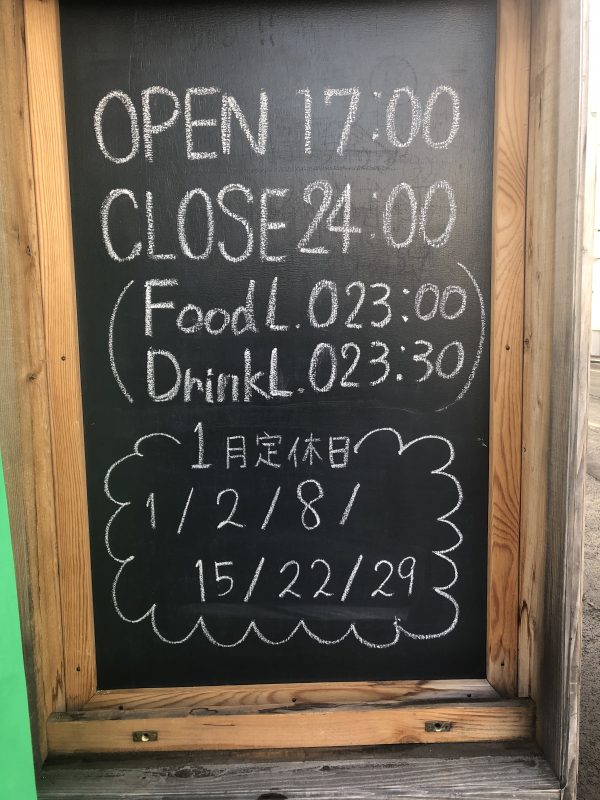 OPEN 17:00
CLOSE 24:00
(Food L.O 23:00
Drink L.O 23:30)
1月定休日
1/2/8/
15/22/29